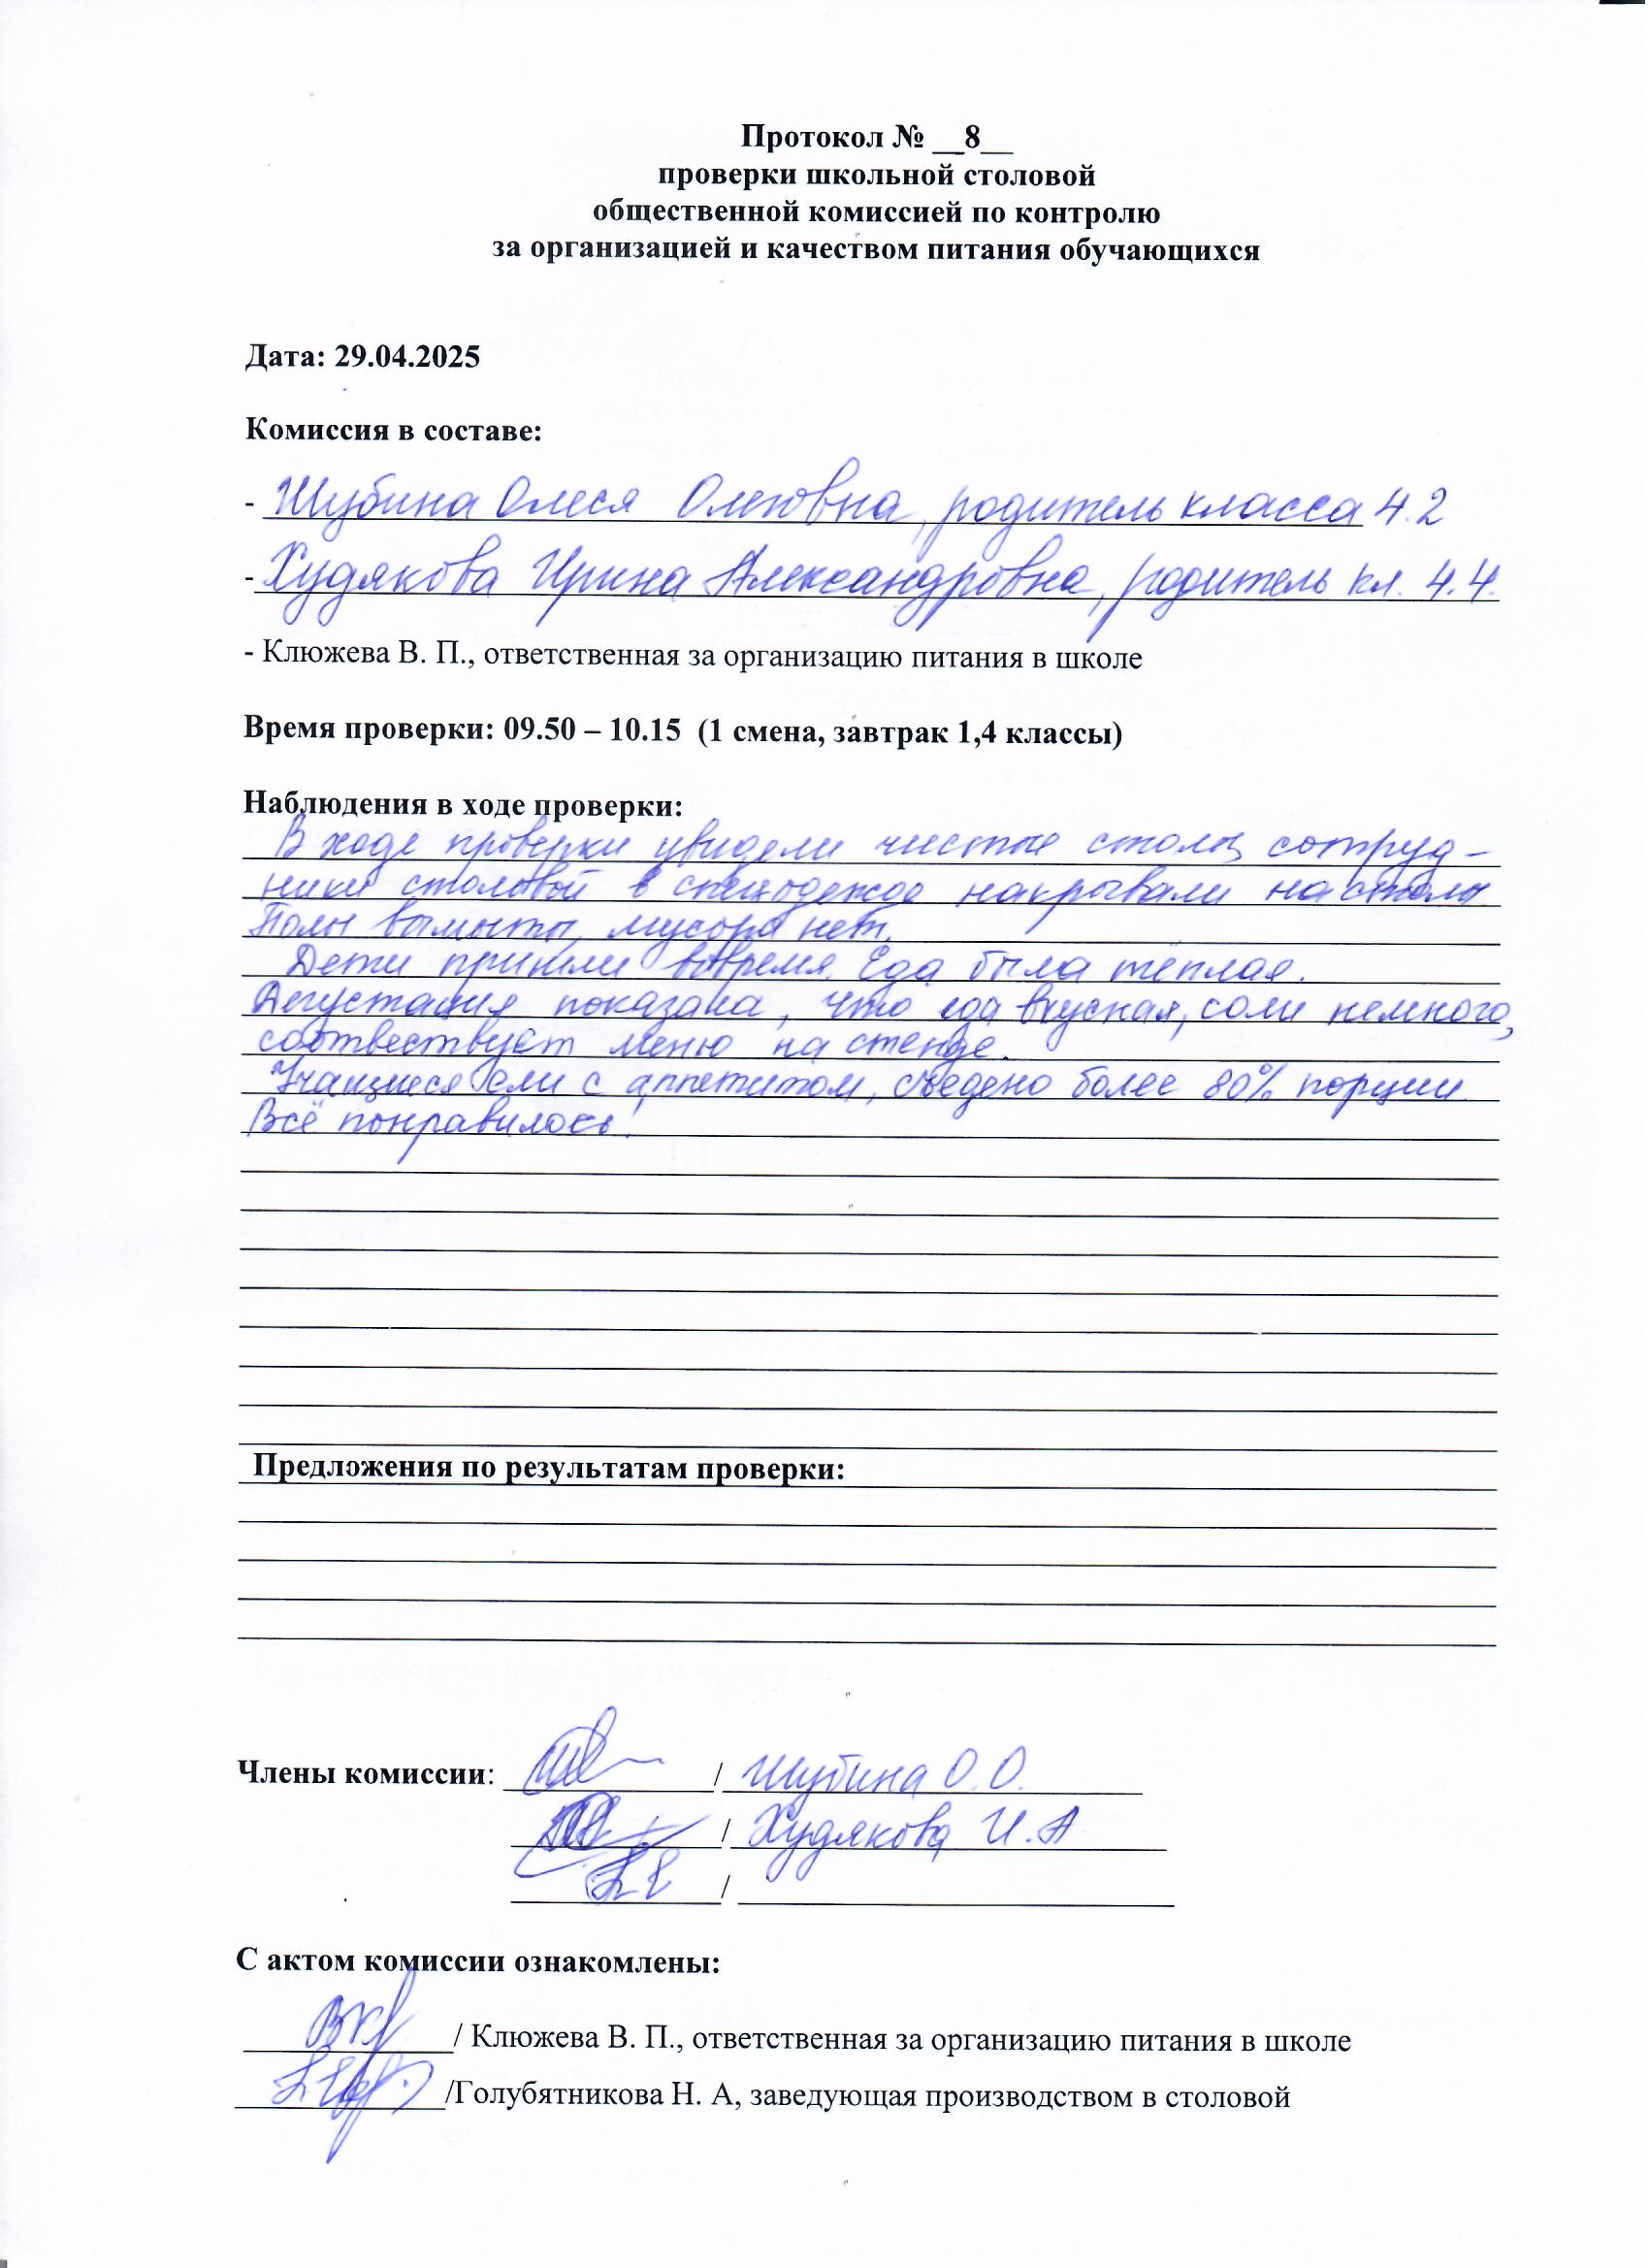 Протокол № __8__
проверки школьной столовой
общественной комиссией по контролю
за организацией и качеством питания обучающихся
Дата: 29.04.2025
Комиссия в составе:
- Шубина Олеся Олеговна, родитель класса 4.2
- Худякова Ирина Александровна, родитель кл. 4.4.
- Клюжева В. П., ответственная за организацию питания в школе
Время проверки: 09.50 – 10.15 (1 смена, завтрак 1,4 классы)
Наблюдения в ходе проверки:
В ходе проверки увидели чистые столы, сотруд-
ники столовой в спецодежде накрывали на столы.
Полы вымыты, мусора нет.
Дети пришли вовремя. Еда была тёплая.
Дегустация показала, что еда вкусная, соли немного,
соотвествует меню на стенде.
Учащиеся ели с аппетитом, съедено более 80% порции.
Всё понравилось!
Предложения по результатам проверки:
Члены комиссии: / Шубина О.О.
/ Худякова И.А
/
С актом комиссии ознакомлены:
/ Клюжева В. П., ответственная за организацию питания в школе
/Голубятникова Н. А, заведующая производством в столовой